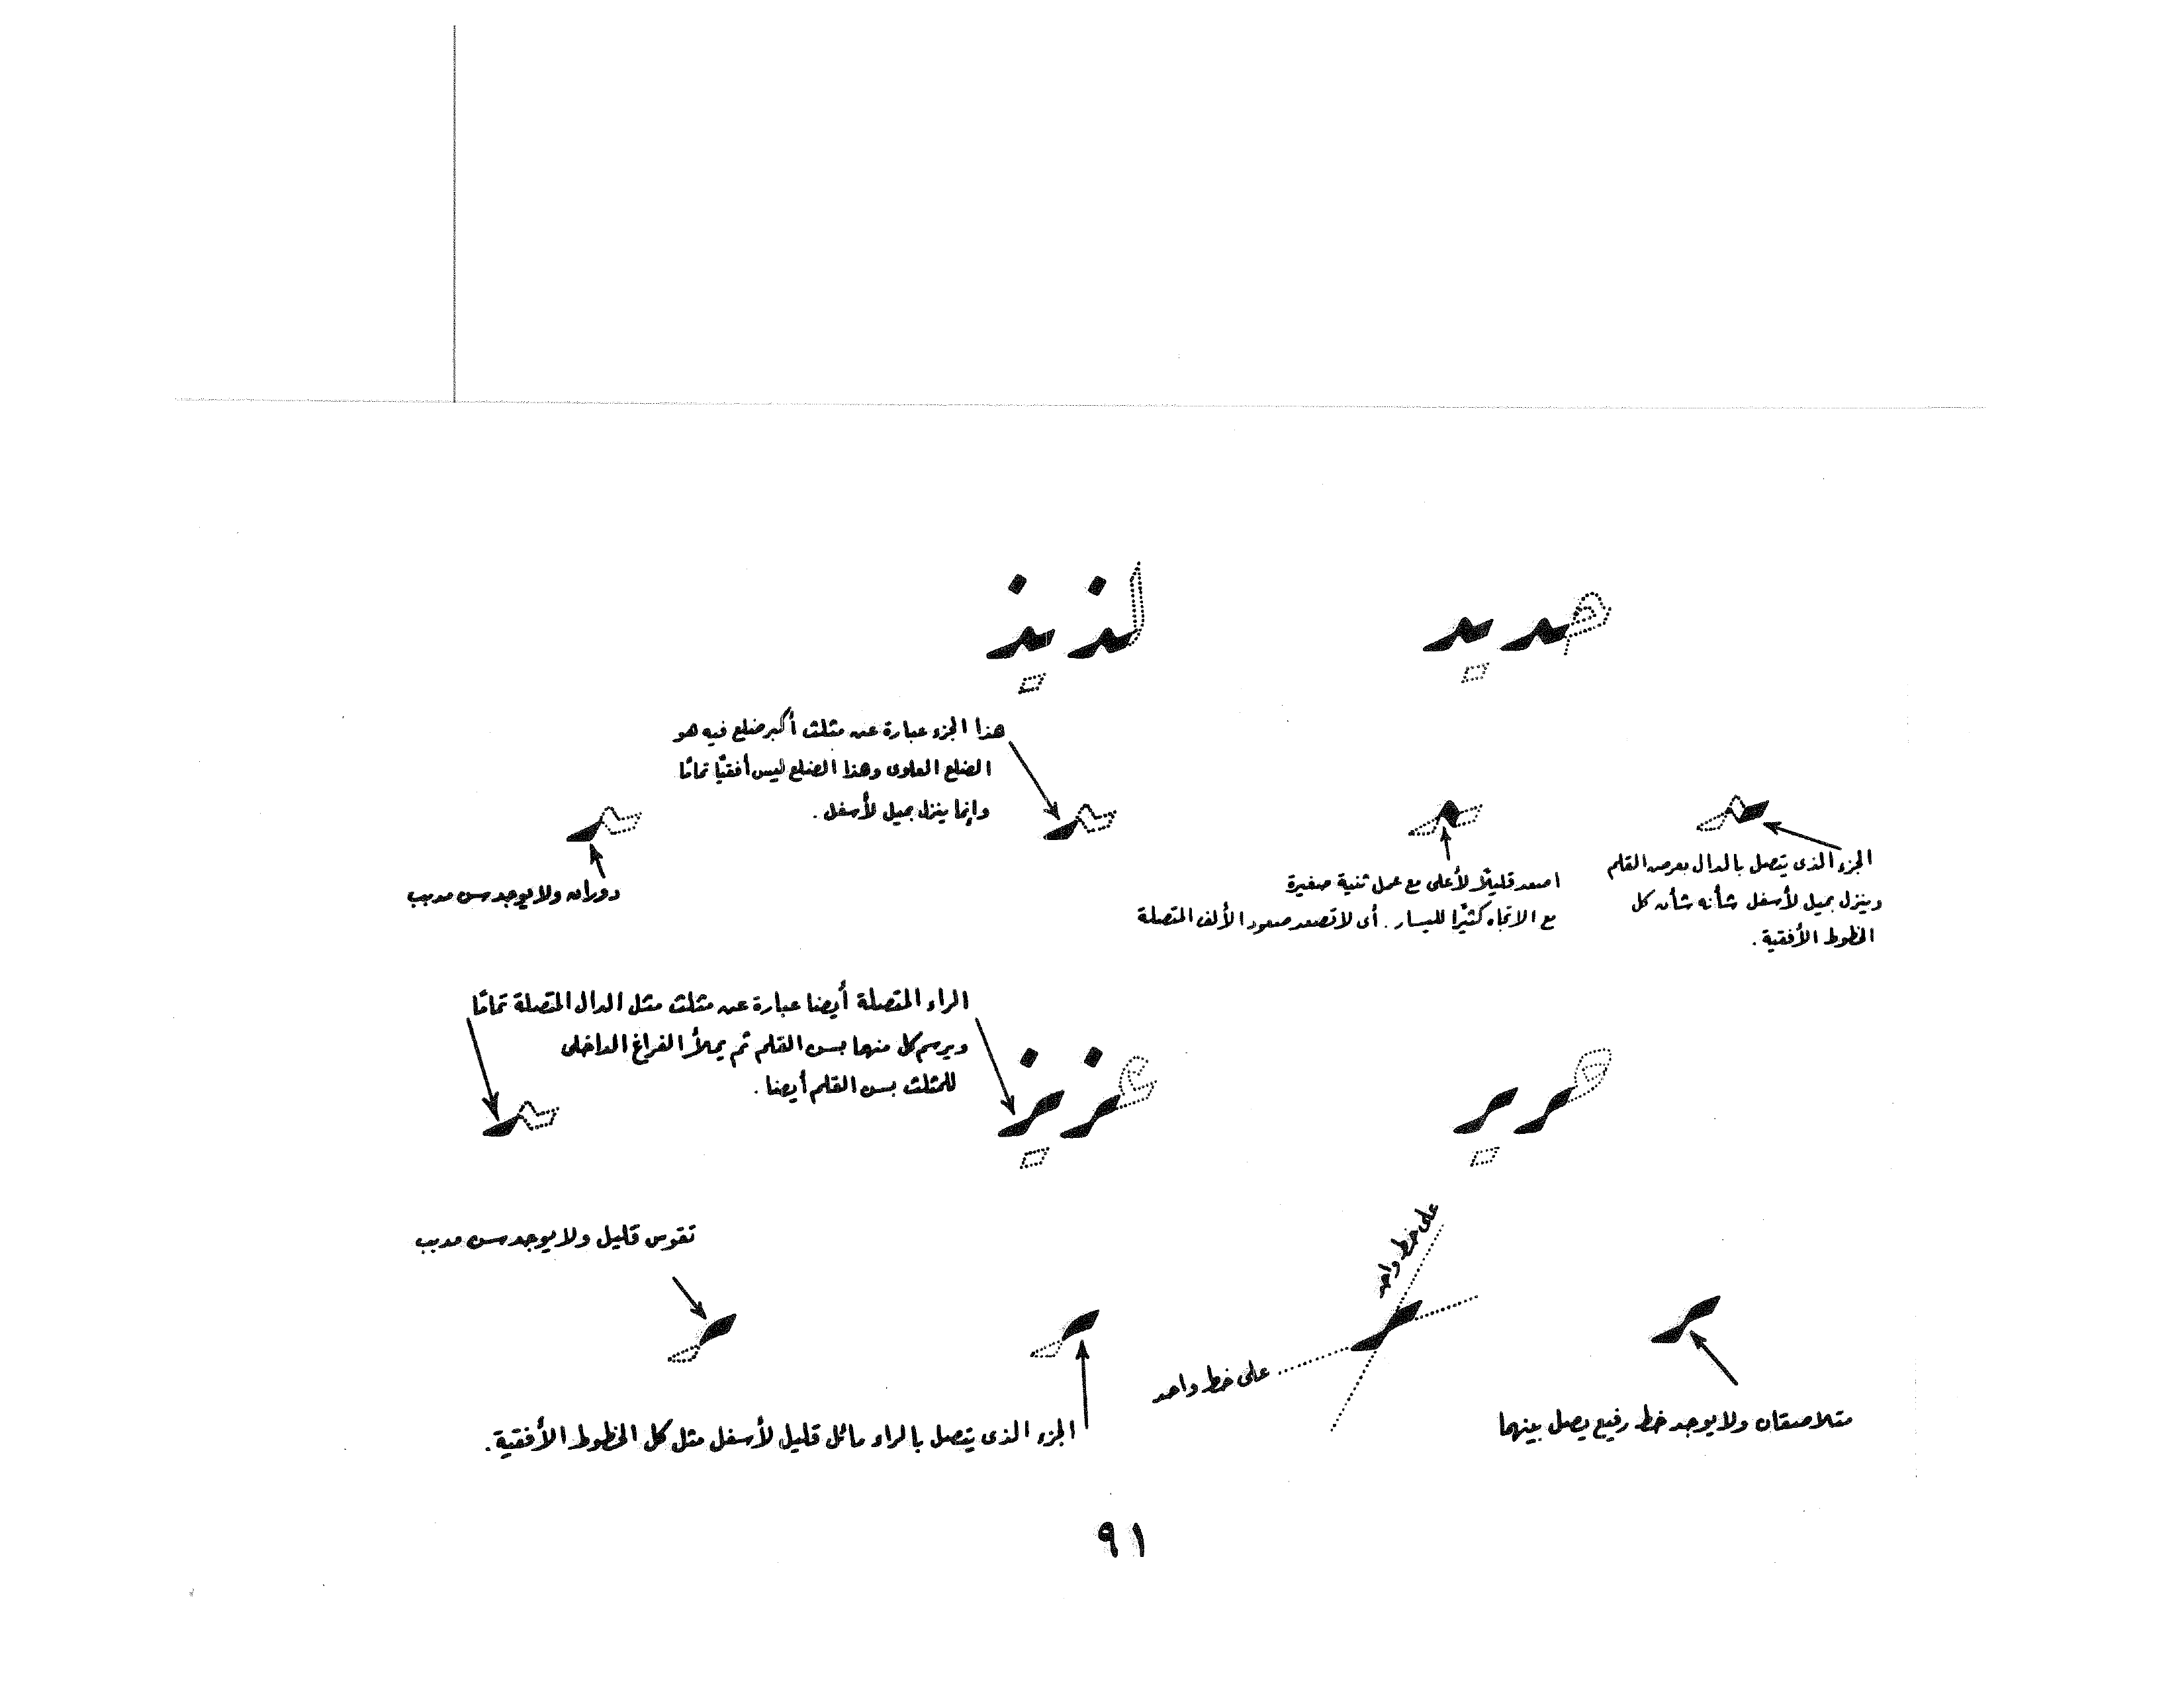 حديد
لذيذ
الجزء الذى يتصل بالدال بعرض القلم
وينزل بميل لأسفل شأنه شأن كل
الخطوط الأفقية .
اصعد قليلًا لأعلى مع عمل ثنية صغيرة
مع الاتجاه كثيرًا لليسار . أى لا تصعد صعود الألف المتصلة
هذا الجزء عبارة عن مثلث أكبر ضلع فيه هو
الضلع العلوى وهذا الضلع ليس أفقيًا تمامًا
وإنما ينزل بميل لأسفل .
دوران ولا يوجد سن مدبب
حرير
عزيز
الراء المتصلة أيضا عبارة عن مثلث مثل الدال المتصلة تمامًا
ويرسم كل منهما بسن القلم ثم يملأ الفراغ الداخلى
للمثلث بسن القلم أيضا .
متلاصقان ولا يوجد خط رفيع يصل بينهما
على خط واحد
على خط واحد
الجزء الذى يتصل بالراء مائل قليل لأسفل مثل كل الخطوط الأفقية .
تقوس قليل ولا يوجد سن مدبب
٩١